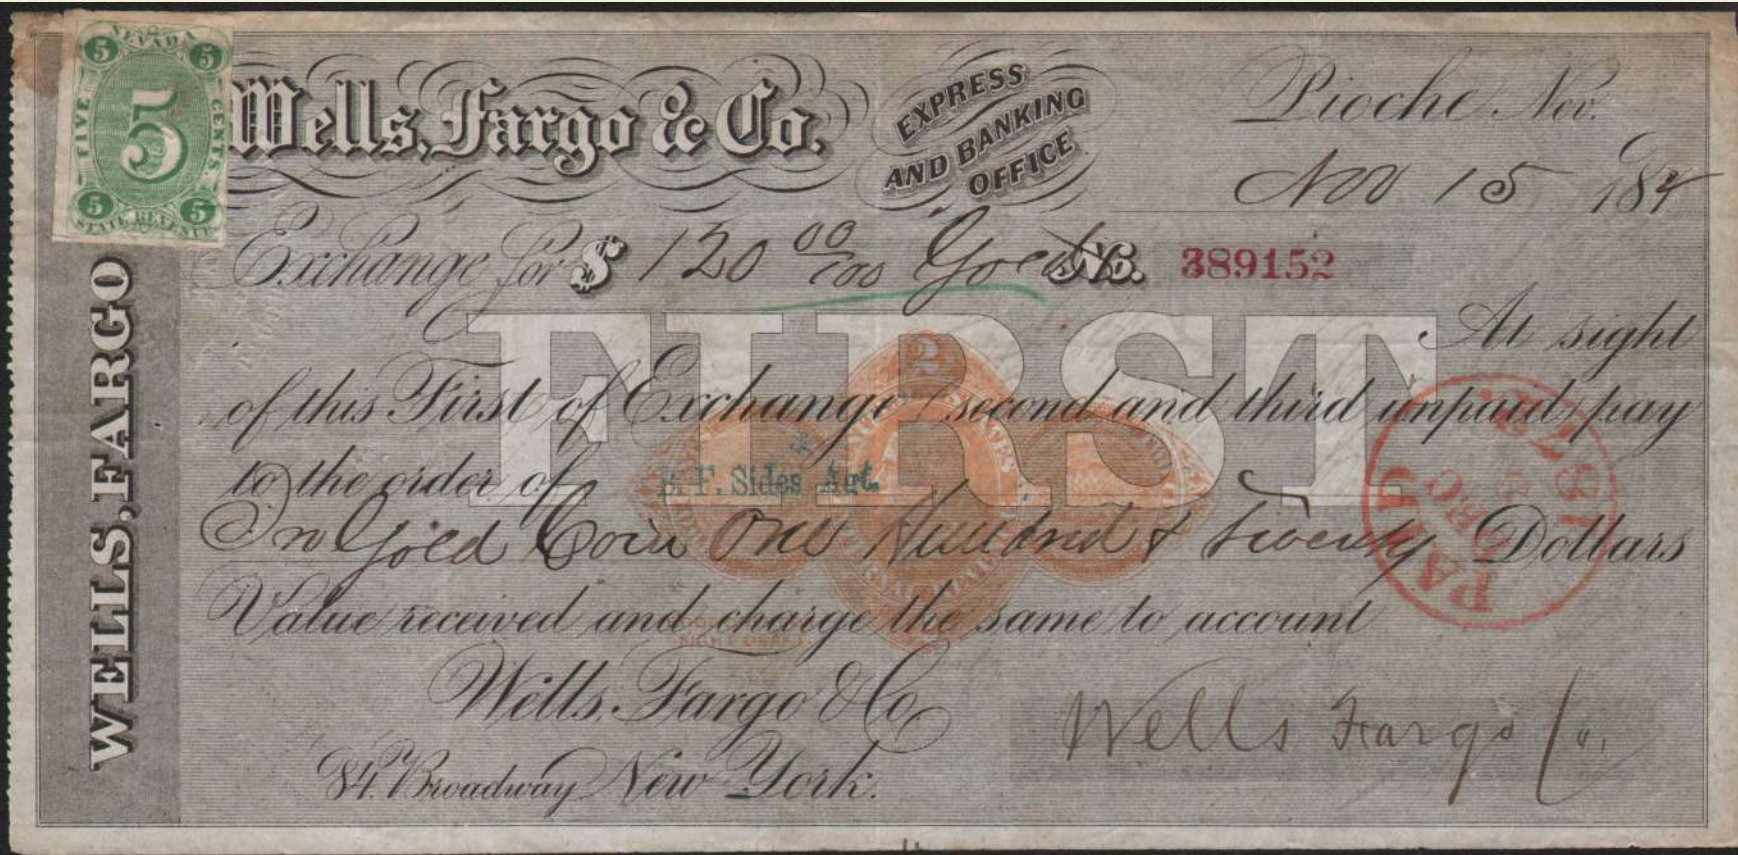 NEVADA
5 5
FIVE 5 CENTS.
5 5
STATE REVENUE
Wells, Fargo & Co.
EXPRESS
AND BANKING
OFFICE
Pioche Nev.
Nov 15 187
Exchange for $ 120 00/100 Gold No. 389152
FIRST
At sight
2
of this First of Exchange (second and third unpaid) pay
to the order of B. F. Sides Agt.
In Gold Coin One Hundred & Twenty Dollars
Value received and charge the same to account
Wells, Fargo & Co
84 Broadway New York.
Wells Fargo Co.
WELLS, FARGO
PAID
DEC
187